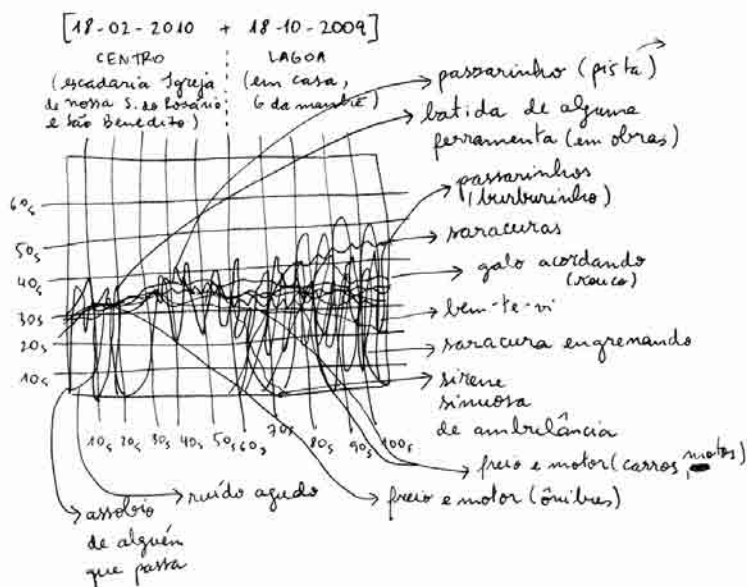 [18-02-2010 + 18-10-2009]
CENTRO
(escadaria Igreja
de nossa S. do Rosário
e São Benedito)
LAGOA
(em casa,
6 da manhã)
passarinho (pista)
batida de alguma
ferramenta (em obras)
passarinhos
(burburinho)
saracuras
galo acordando
(rouco)
bem-te-vi
saracura engrenando
sirene
sinuosa
de ambulância
freio e motor (carros, motos)
freio e motor (ônibus)
ruído agudo
assobio
de alguém
que passa
60s
50s
40s
30s
20s
10s
10s 20s 30s 40s 50s 60s 70s 80s 90s 100s